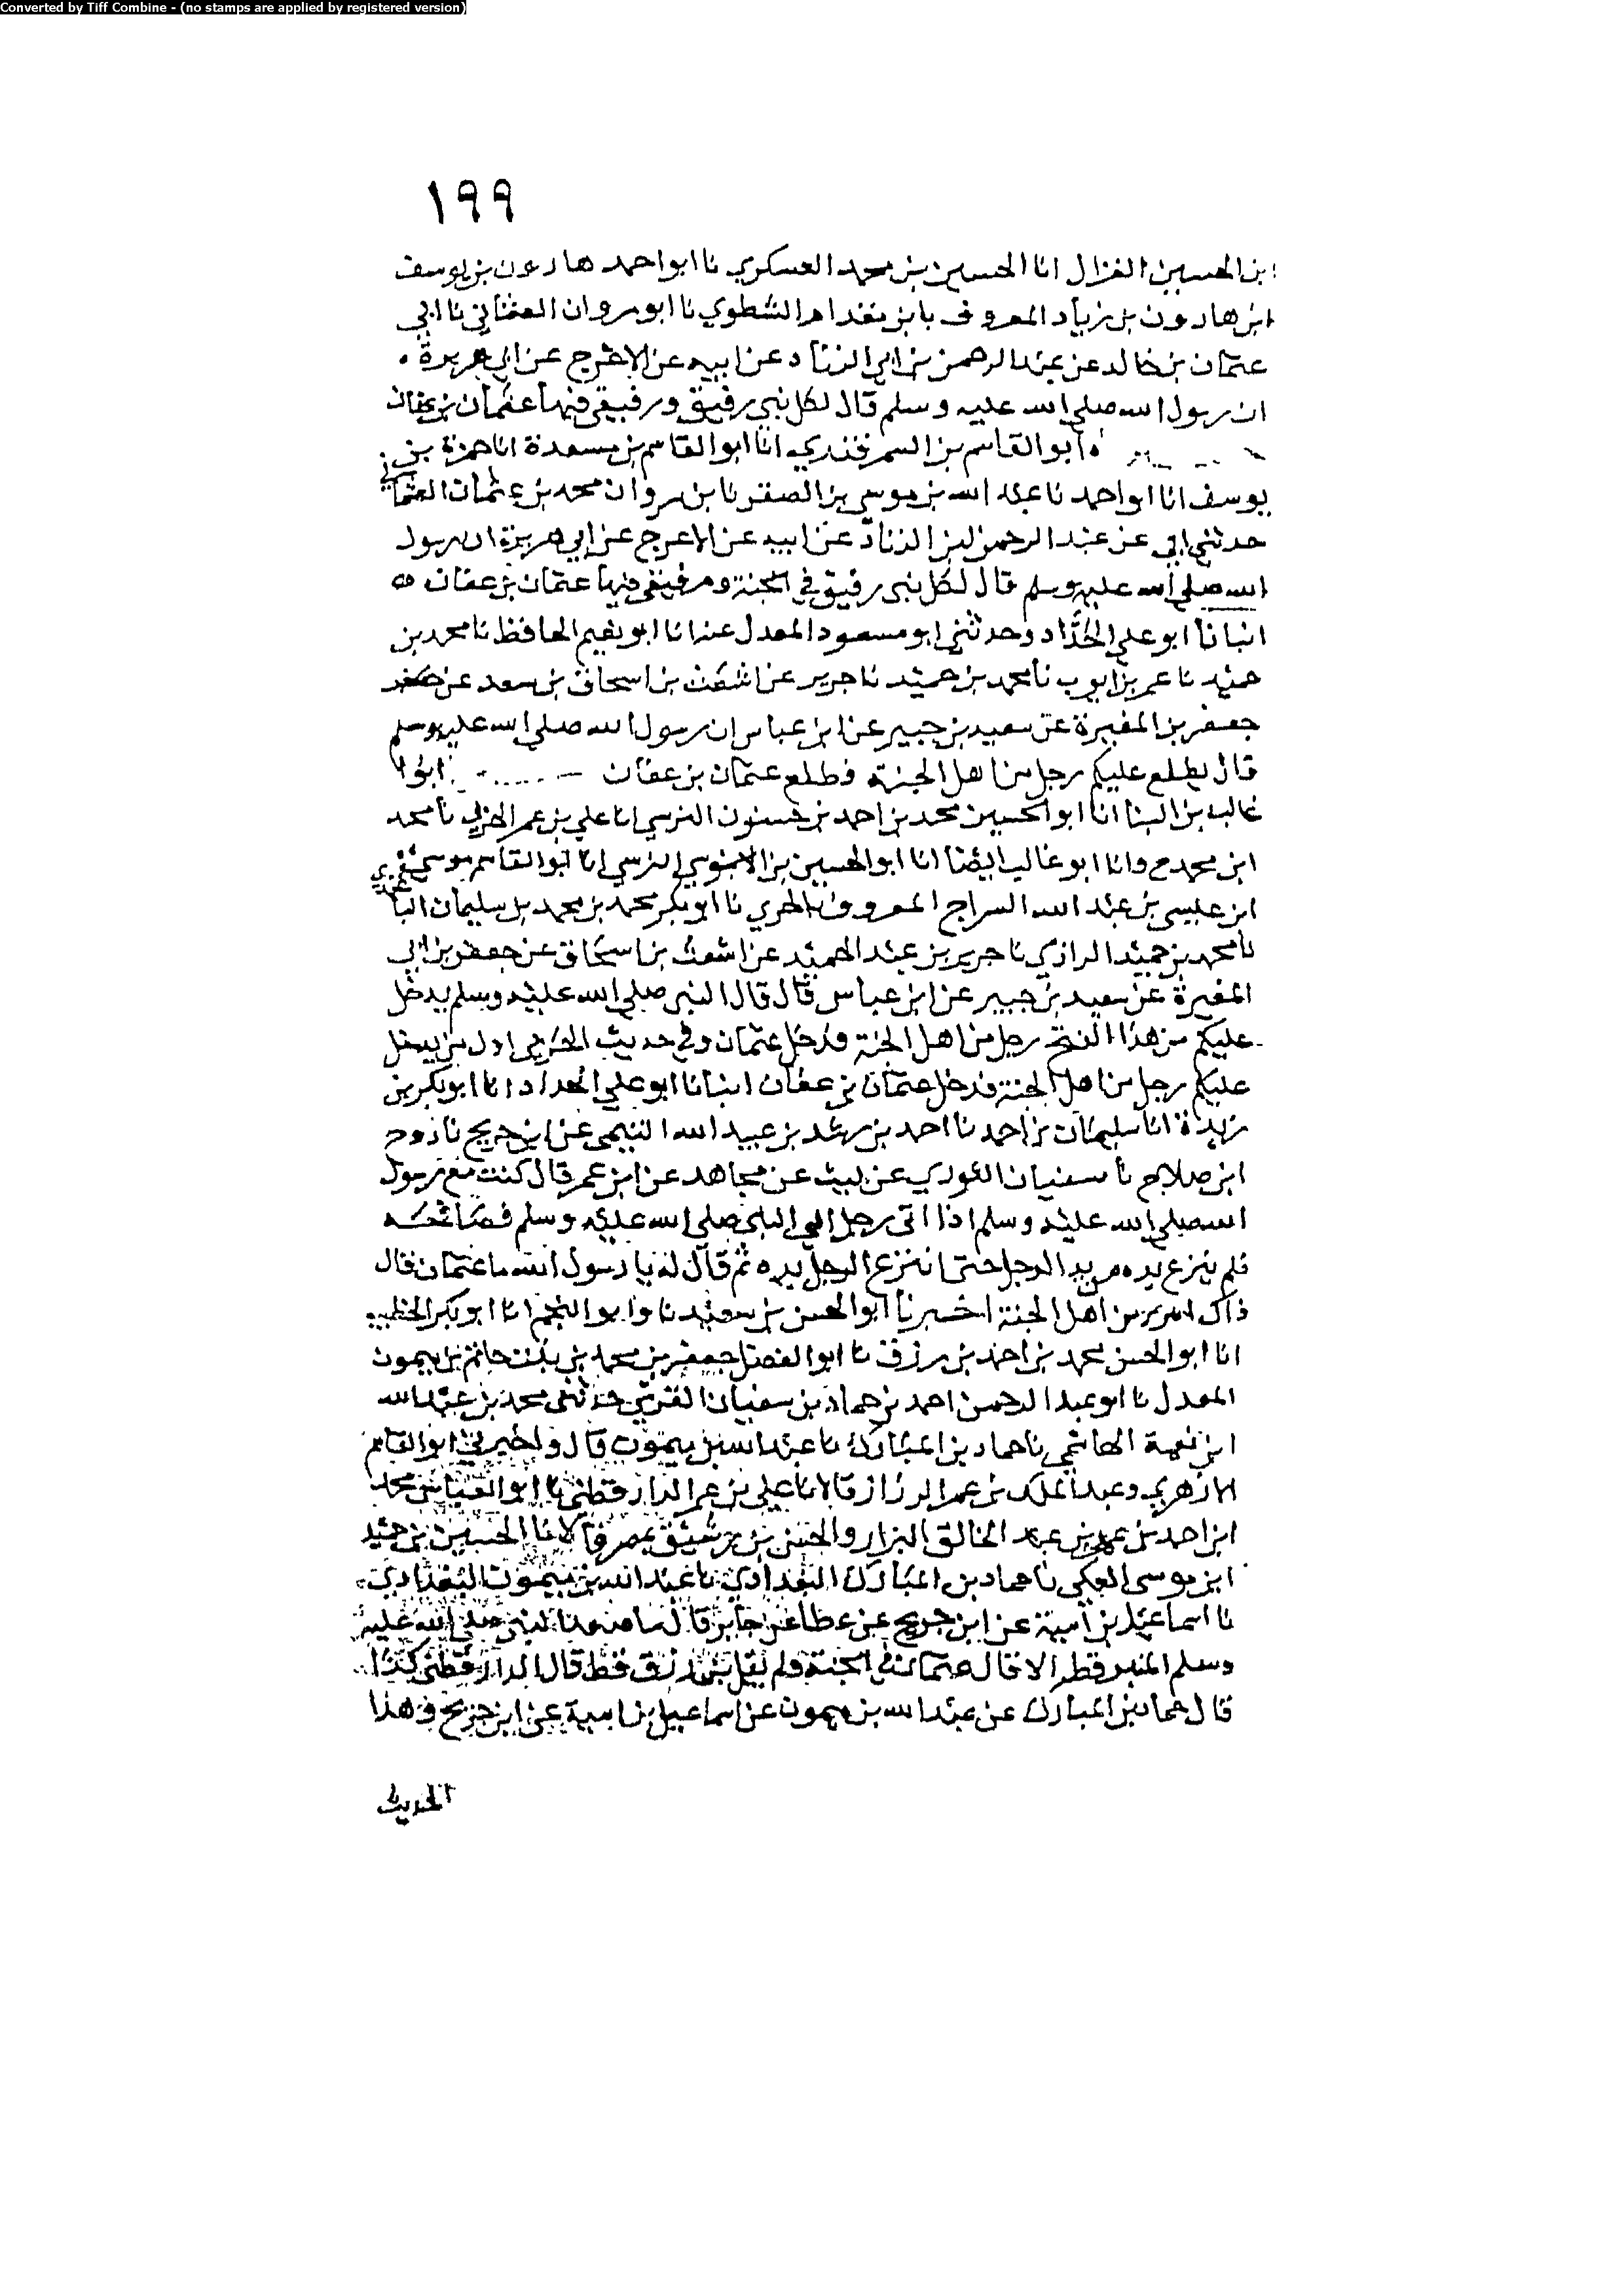 Converted by Tiff Combine - (no stamps are applied by registered version)
١٩٩
بن الحسين الغزال انا الحسين بن محمد العسكري نا ابو احمد هارون بن يوسف
ابن هارون بن زياد المعروف بابن مقدام الشطوي نا ابو مروان العثماني نا ابي
عثمان بن خالد عن عبد الرحمن بن ابي الزناد عن ابيه عن الاعرج عن ابي هريرة
ان رسول الله صلى الله عليه وسلم قال لكل نبي رفيق ورفيقي فيها عثمان بن عفان
ابو القاسم بن السمرقندي انا ابو القاسم بن مسعدة انا حمزة بن
يوسف انا ابو احمد نا عبد الله بن موسى بن الصقر نا بن مروان محمد بن عثمان العثماني
حدثني ابي عن عبد الرحمن بن الزناد عن ابيه عن الاعرج عن ابي هريرة ان رسول
الله صلى الله عليه وسلم قال لكل نبي رفيق في الجنة ورفيقي فيها عثمان بن عفان
انبانا ابو علي الحداد وحدثني ابو مسعود المعدل عنه انا ابو نعيم الحافظ نا محمد بن
حميد نا عمر بن ايوب نا محمد بن حميد نا جرير عن اشعث بن اسحاق بن سعد عن
جعفر بن المغيرة عن سعيد بن جبير عن ابن عباس ان رسول الله صلى الله عليه وسلم
قال يطلع عليكم رجل من اهل الجنة فطلع عثمان بن عفان ابوا
غالب بن البنا انا ابو الحسين محمد بن احمد بن حسنون النرسي انا علي بن عمر الحربي نا محمد
ابن محمد ح وانا ابو غالب ايضا انا ابو الحسين بن الابنوسي النرسي انا ابو القاسم موسى
ابن عيسى بن عبد الله السراج المعروف بالحري نا ابو بكر محمد بن محمد بن سليمان الباغندي
نا محمد بن حميد الرازي نا جرير بن عبد الحميد عن اشعث بن اسحاق عن جعفر بن ابي
المغيرة عن سعيد بن جبير عن ابن عباس قال قال النبي صلى الله عليه وسلم يدخل
عليكم من هذا الفج رجل من اهل الجنة فدخل عثمان وفي حديث الحربي اول من يدخل
عليكم رجل من اهل الجنة فدخل عثمان بن عفان انبانا ابو علي الحداد انا ابو بكر بن
ريذة انا سليمان بن احمد نا احمد بن رشد بن عبيد الله التيمي عن ابن جريج نا روح
ابن صلاح نا سفيان الثوري عن ليث عن مجاهد عن ابن عمر قال كنت مع رسول
الله صلى الله عليه وسلم اذ اتى رجل الى النبي صلى الله عليه وسلم فصافحه
فلم ينزع يده من يد الرجل حتى انتزع الرجل يده ثم قال له يا رسول الله ما عثمان قال
ذاك امرؤ من اهل الجنة اخبرنا ابو الحسن بن سعيد نا وابو النجم انا ابو بكر الخطيب
انا ابو الحسن محمد بن احمد بن رزق نا ابو الفضل جعفر بن محمد بن بنت حاتم بن ميمون
المعدل نا ابو عبد الرحمن احمد بن حماد بن سفيان القرشي حدثني محمد بن عبد الله
ابن نعيمة الهاشمي نا حماد بن المبارك نا عبد الله بن ميمون قال واخبرني ابو القاسم
الازهري وعبد الملك بن عمر الرزاز قالا نا علي بن عمر الدارقطني نا ابو العباس محمد
ابن احمد بن عمرو بن عبد الخالق البزار والحسن بن رشيق بمصر قالا نا الحسين بن حميد
ابن موسى العكي نا حماد بن المبارك البغدادي نا عبد الله بن ميمون البغدادي
نا اسماعيل بن امية عن ابن جريج عن عطا عن جابر قال ما صعد النبي صلى الله عليه
وسلم المنبر قط الا قال عثمان في الجنة ولم يقل بن رزق قط قال الدارقطني كذا
قال حماد بن المبارك عن عبد الله بن ميمون عن اسماعيل بن امية عن ابن جريج في هذا
الحديث